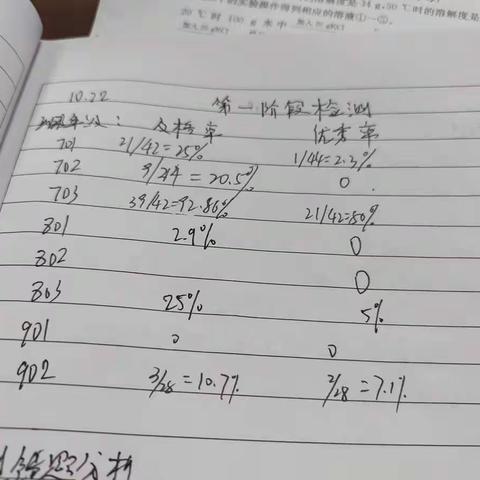 的溶解度是34g,50℃时的溶解度是
20℃时100g水中
10.22 第一阶段检测
及格率 优秀率
701 21/42=25% 1/44=2.3%
702 9/44=20.5% 0
703 39/42=92.86% 21/42=50%
801 2.9% 0
802 0
803 25% 5%
901 0 0
902 3/28=10.7% 2/28=7.1%
错题分析